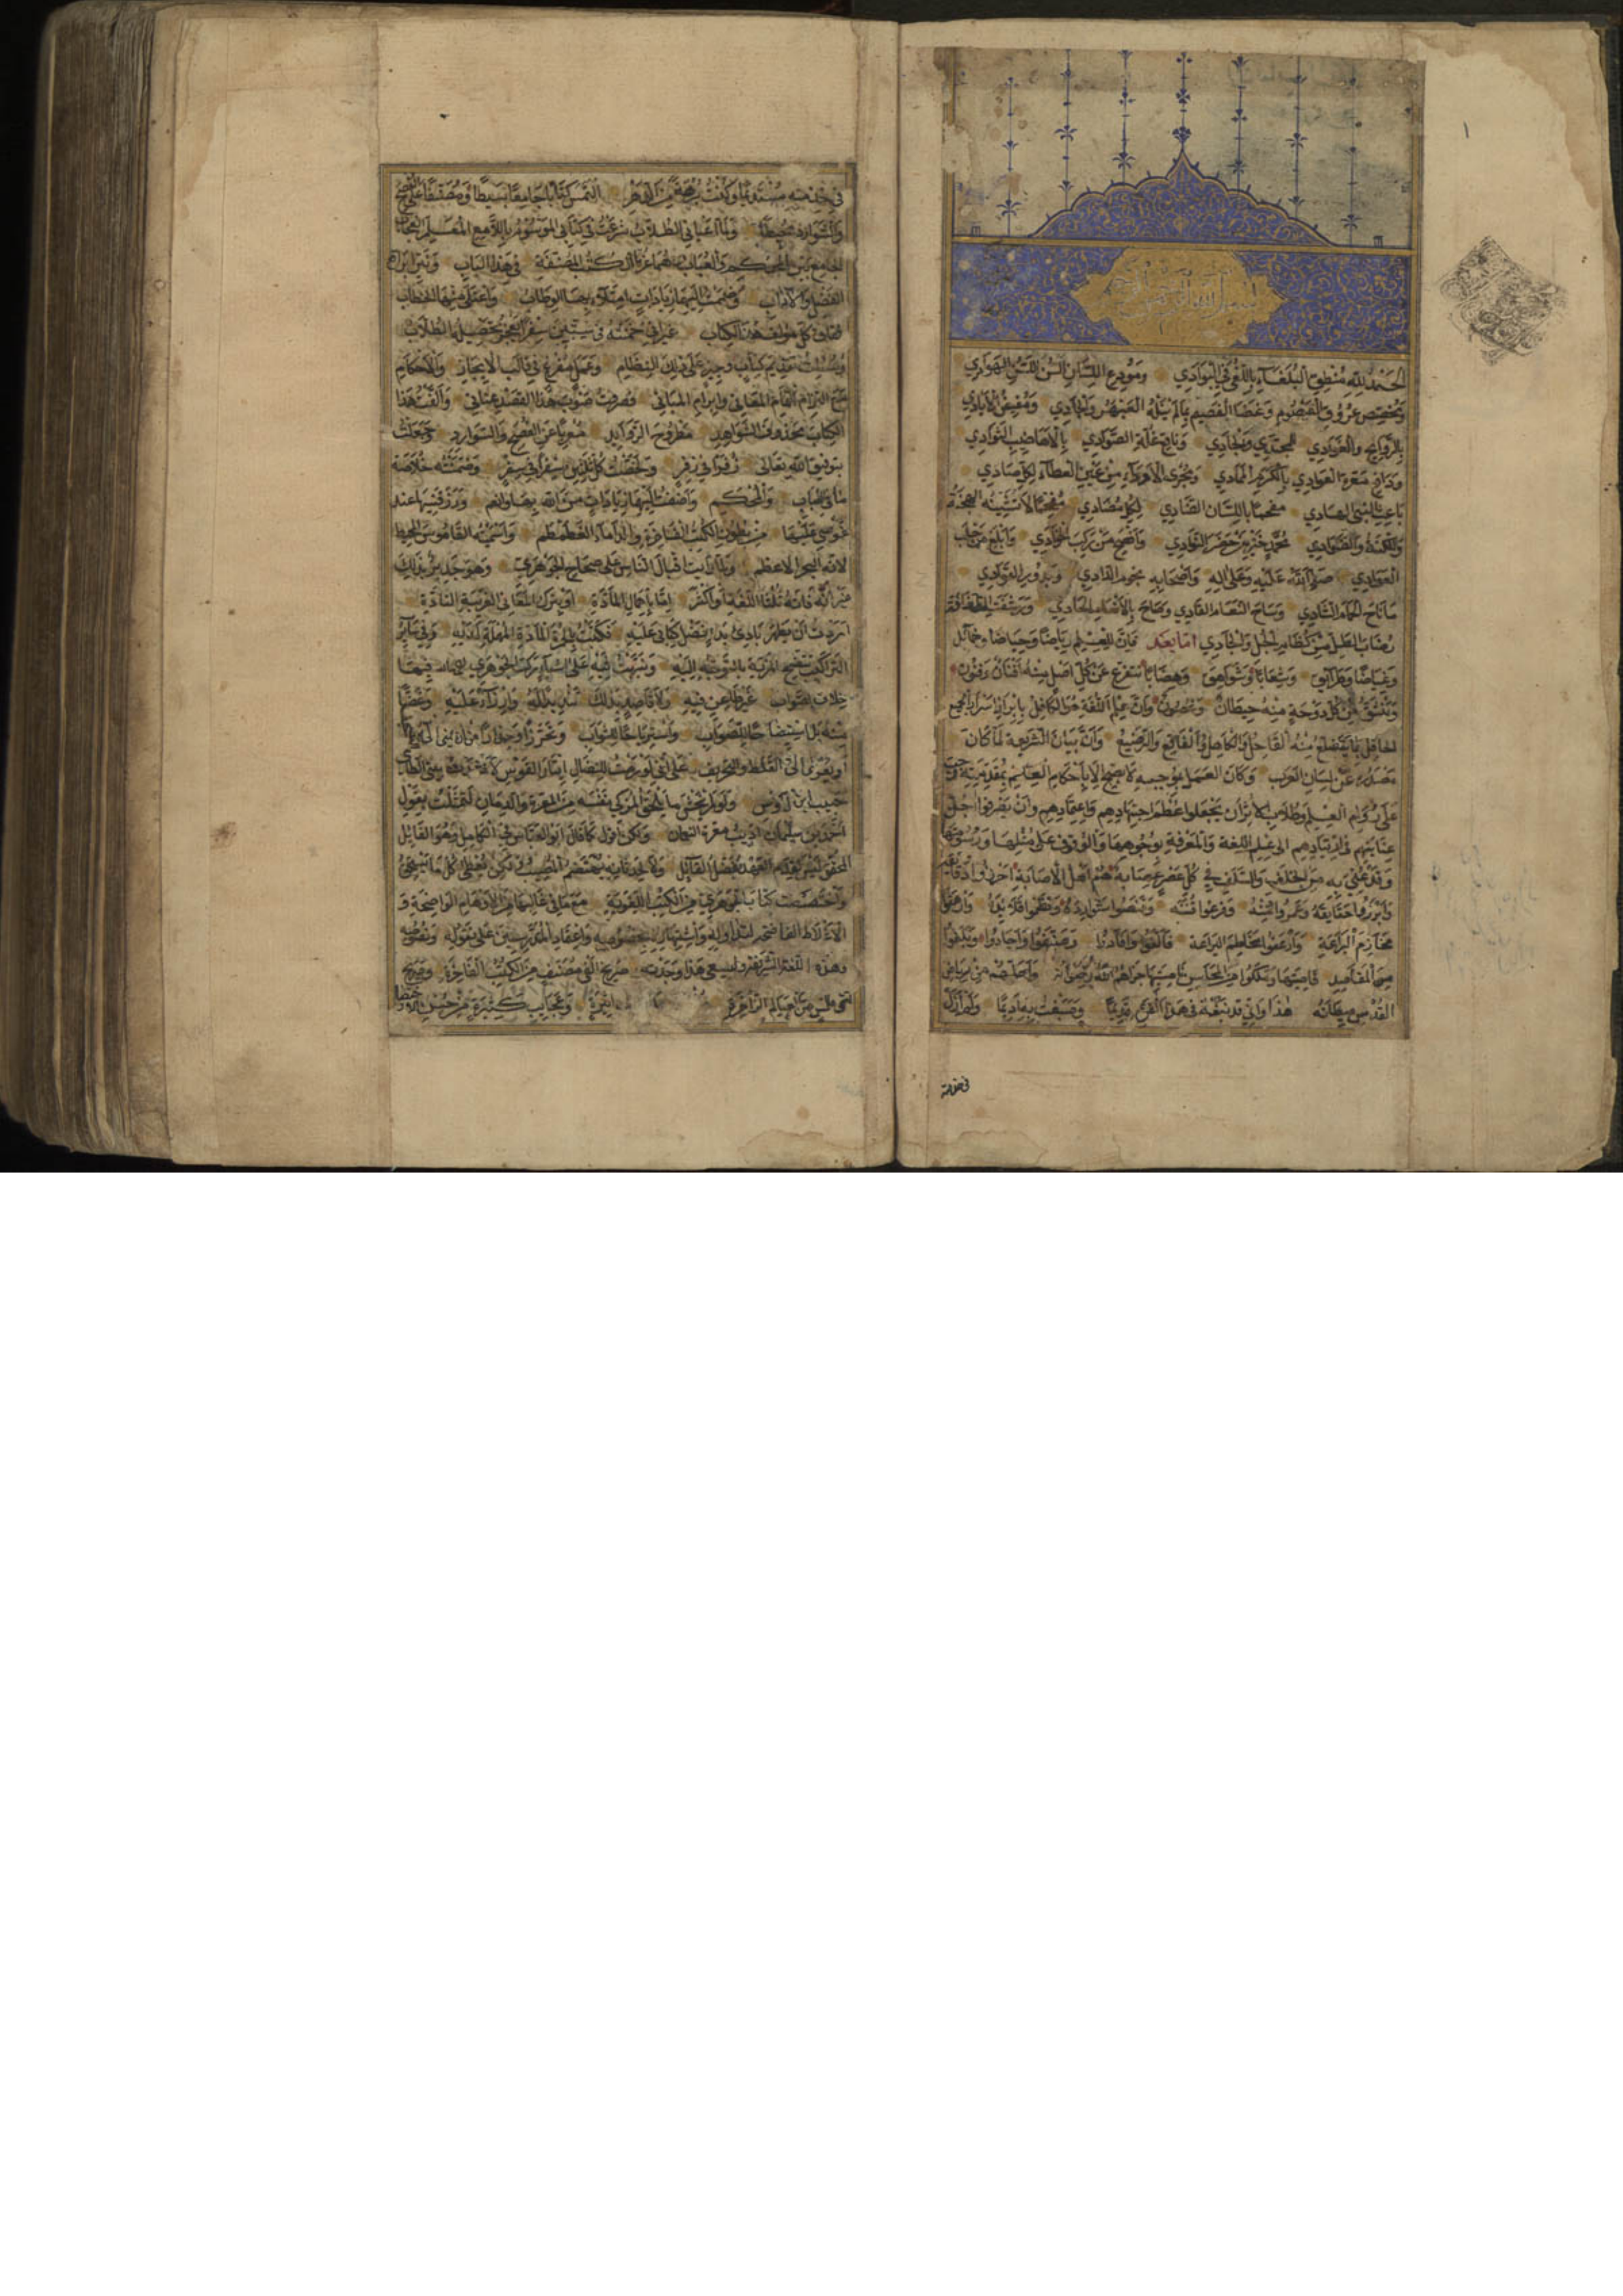 ١
بسم الله الرحمن الرحيم
الحمد لله منطق البلغاء باللغى في البوادي ومودع اللسان ألسن اللسن الهوادي
ومخصص عروق القيصوم وغضا القصيم بما لم ينله العبهر والجادي ومفيض الأيادي
بالروائح والغوادي للمجتدي والجادي وناقع غلة الصوادي بالأهاضيب الثوادي
ودافع معرة العوادي بالكرم الممادي ومجري الأوداء من عين العطاء لكل صادي
باعث النبي الهادي مفحما باللسان الضادي لكل مضادي مفخما لا تشينه الهجنة
واللكنة والضوادي محمد خير من حضر النوادي وأفصح من ركب الخوادي وأبلغ من حلب
العوادي صلى الله عليه وعلى اله وأصحابه نجوم الدادي وبدور القوادي
ما ناح الحمام الشادي وساح النعام القادي وصاح بالأنغام الحادي ورشفت الطفاوة
رضاب الطل من كظام الجل والجادي أما بعد فإن للعلم رياضا وحياضا وخمائل
وغياضا وطرائق وشعابا وشواهق وهضابا يتفرع عن كل أصل منه أفنان وفنون
وينشق عن كل دوحة منه خيطان وغصون وإن علم اللغة هو الكافل بإبراز أسرار الجميع
الحافل بما يتضلع منه القاحل والكاهل والفاقع والرضيع وأن بيان الشريعة لما كان
مصدره عن لسان العرب وكان العمل بموجبه لا يصح إلا بإحكام العلم بمقدمته وجب
على روام العلم وطلاب الأثر أن يجعلوا عظم اجتهادهم واعتمادهم وأن يصرفوا جل
عنايتهم في ارتيادهم الى علم اللغة والمعرفة بوجوهها والوقوف على مثلها ورسومها
وقد عني به من الخلف والسلف في كل عصر عصابة هم أهل الإصابة أحرزوا دقائقه
وأبرزوا حقائقه وعمروا دمنه وفرعوا قننه وقنصوا شوارده ونظموا قلائده وأرهفوا
مخاذم البراعة وأرعفوا مخاطم اليراعة فألفوا وأفادوا وصنفوا وأجادوا وبلغوا
من المقاصد قاصيتها وملكوا من المحاسن ناصيتها جزاهم الله رضوانه وأحلهم من رياض
القدس ميطانه هذا وإني قد نبغت في هذا الفن قديما وصبغت به أديما ولم أزل
في خدمته
في خدمته مستديما وكنت برهة من الدهر ألتمس كتابا جامعا بسيطا ومصنفا على الفصح
والشوارد محيطا ولما أعياني الطلاب شرعت في كتابي الموسوم باللامع المعلم العجاب
الجامع بين المحكم والعباب فهما غرتا الكتب المصنفة في هذا الباب ونيرا براقع
الفضل والآداب وضممت إليهما زيادات امتلأ بها الوطاب واعتلى منها الخطاب
ففاق كل مؤلف هذا الكتاب غير أني خمنته في ستين سفرا يعجز تحصيله الطلاب
وسئلت تقديم كتاب وجيز على ذلك النظام وعمل مفرغ في قالب الإيجاز والإحكام
مع التزام إتمام المعاني وإبرام المباني فصرفت صوب هذا القصد عناني وألفت هذا
الكتاب محذوف الشواهد مطروح الزوائد معربا عن الفصح والشوارد وجعلت
بتوفيق الله تعالى زفرا في زفر ولخصت كل ثلاثين سفرا في سفر وضمنته خلاصة
ما في العباب والمحكم وأضفت إليه زيادات من الله بها وأنعم ورزقنيها عند
غوصي عليها من بطون الكتب الفاخرة والدأماء الغطمطم وأسميته القاموس المحيط
لأنه البحر الأعظم ولما رأيت إقبال الناس على صحاح الجوهري وهو جدير بذلك
غير أنه فاته ثلثا اللغة أو أكثر إما بإهمال المادة أو بترك المعاني الغريبة النادة
أردت أن يظهر بادئ بدء فضل كتابي عليه فكتبت بالحمرة المادة المهملة لديه وفي سائر
التراكيب تتضح المزية بالتوجه إليه ونبهت فيه على أشياء ركب الجوهري فيها
خلاف الصواب غير طاعن فيه ولا قاصد بذلك تنديدا له وإزراء عليه وغضا
منه بل استيضاحا للصواب واسترباحا للثواب وتحرزا وحذارا من أن ينمى إلي
أو يعزى إلي الغلط والتحريف على أني لو رمت للنضال إيتار القوس لأنشدت بيتي الطائي
حبيب ابن أوس ولو لم أخش ما يلحق المزكي نفسه من المعرة والدمان لتمثلت بقول
أحمد بن سليمان أديب معرة النعمان ولكني أقول كما قال أبو العباس في الكامل وهو القائل
المحق ليس لقدم العهد يفضل القائل ولا لحدثانه يهتضم المصيب ولكن يعطى كل ما يستحق
واختصصت كتاب الجوهري من الكتب اللغوية مع ما في غالبها من الأوهام الواضحة و
الأغلاط الفاضحة لتداوله واشتهاره بخصوصه واعتماد المدرسين على نقوله ونصوصه
وهذه اللغة الشريفة